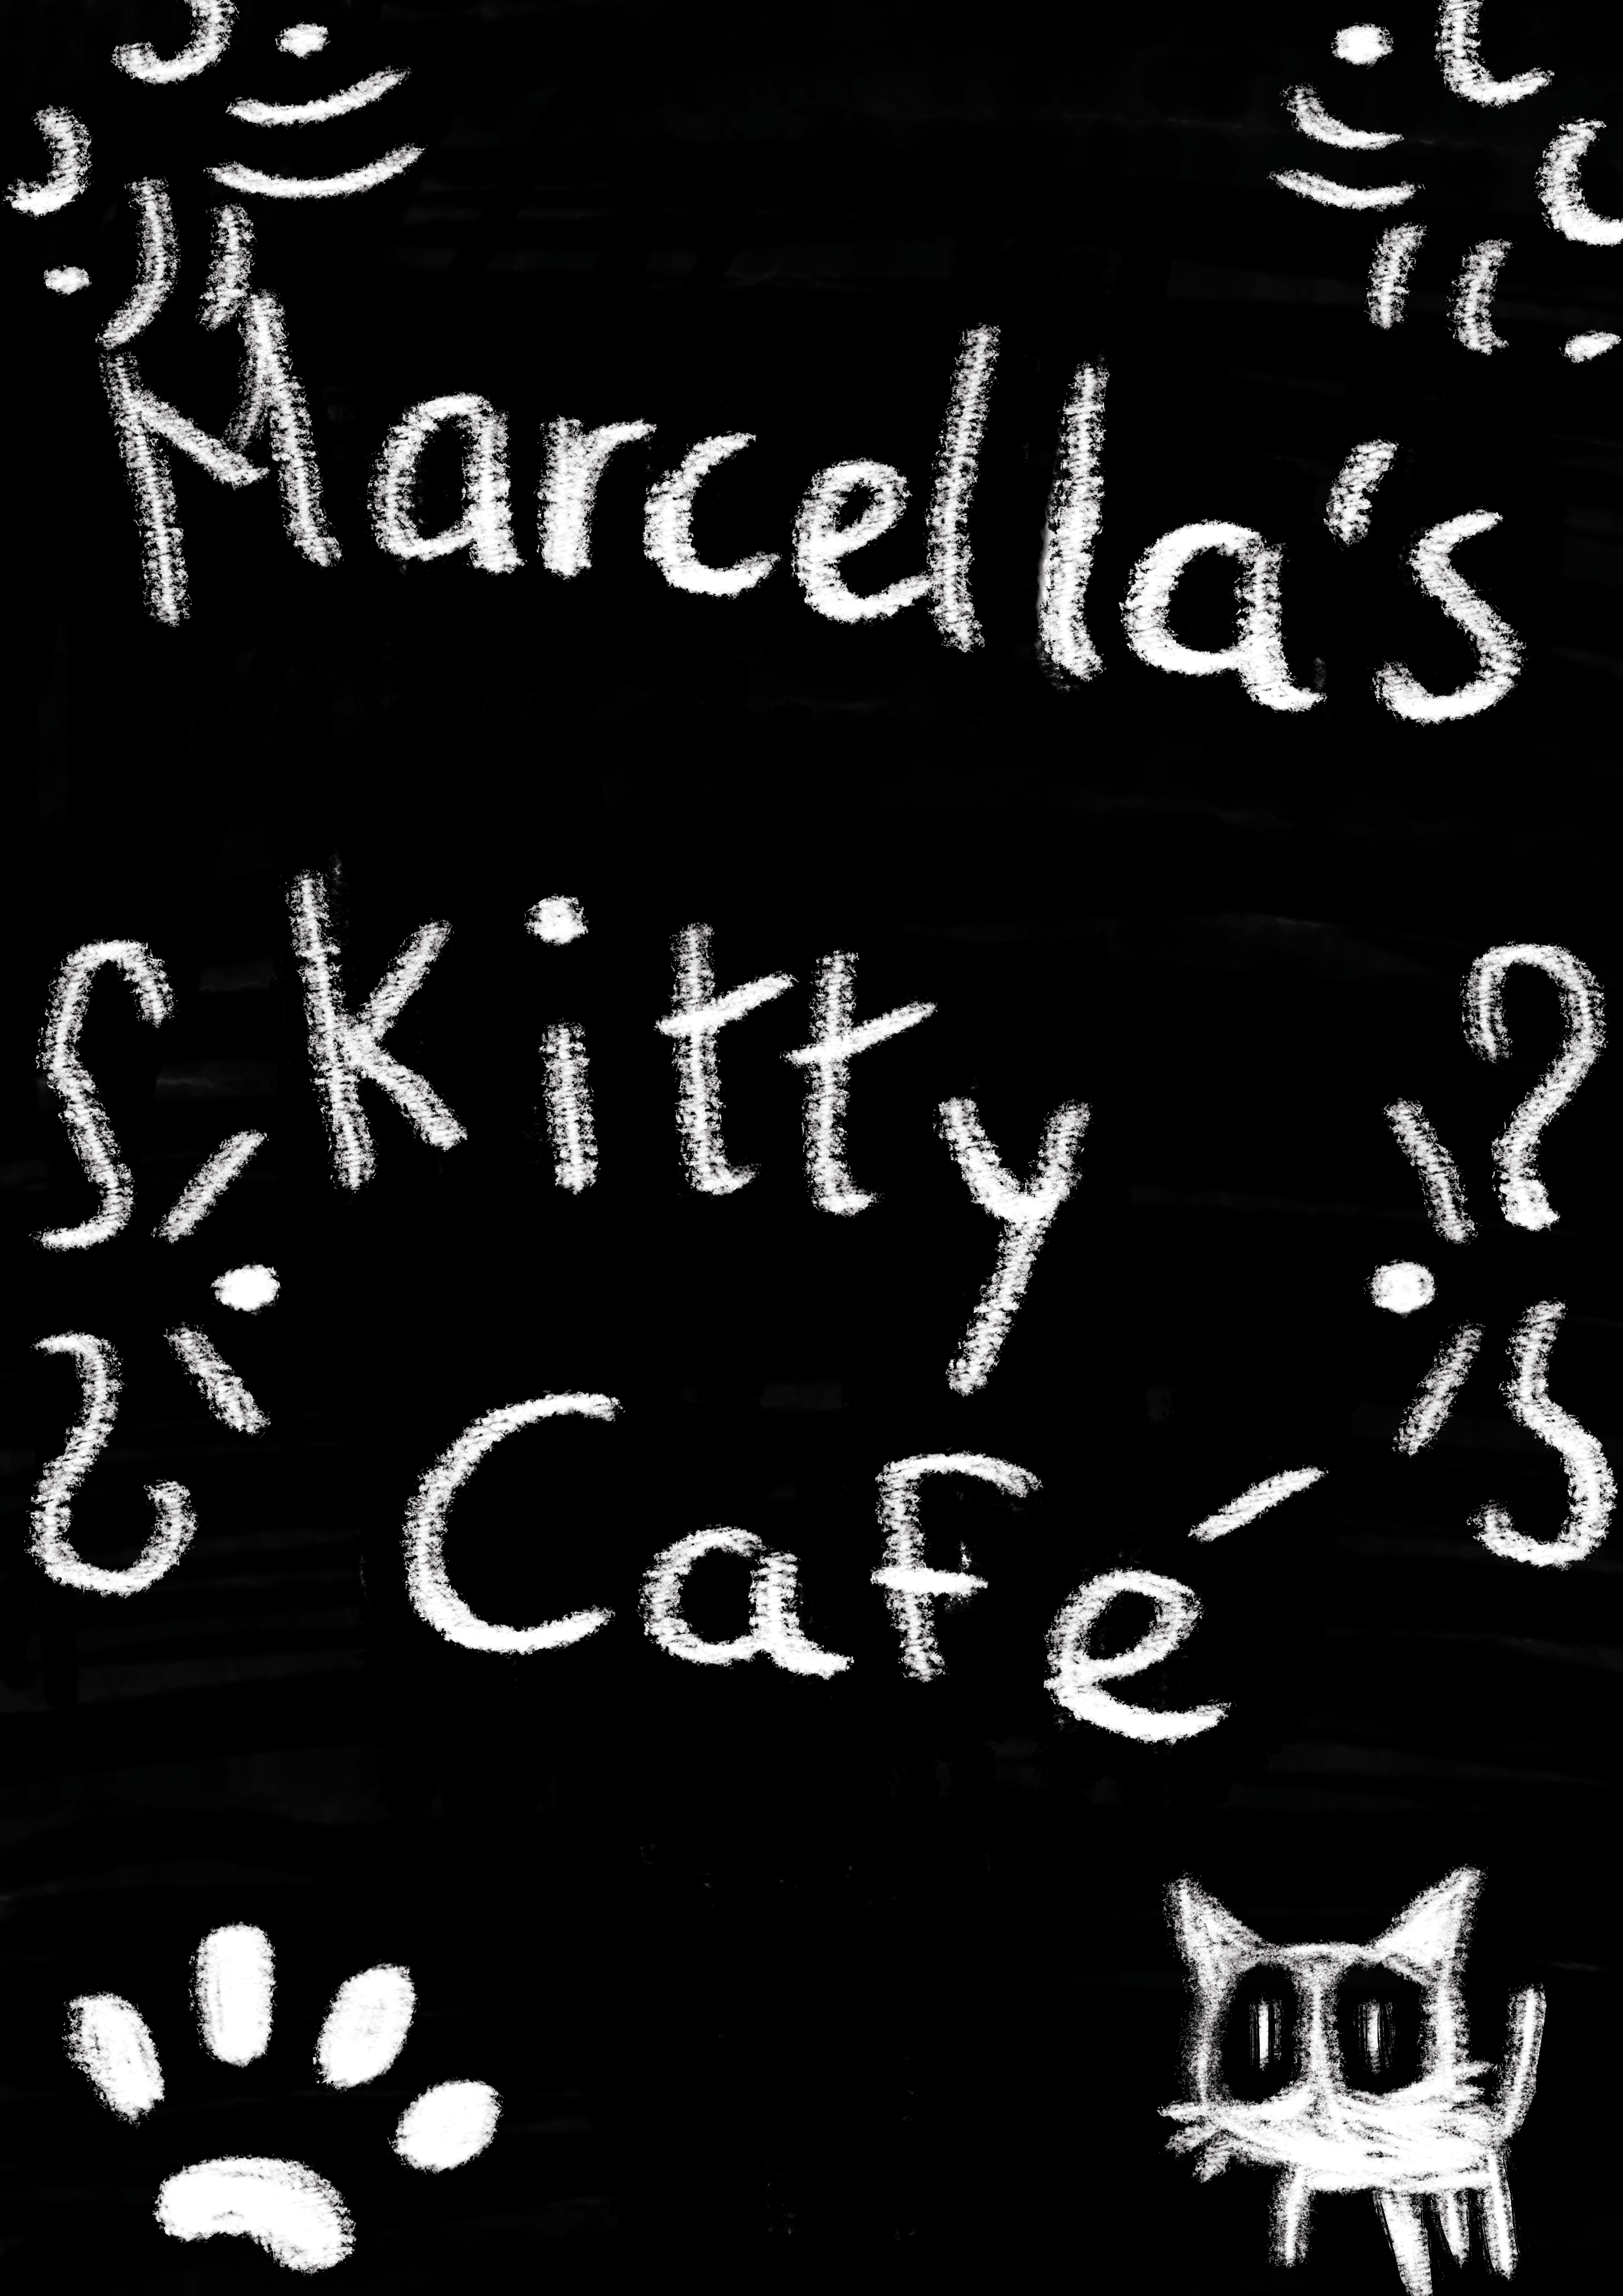 Marcella's
Kitty
Café